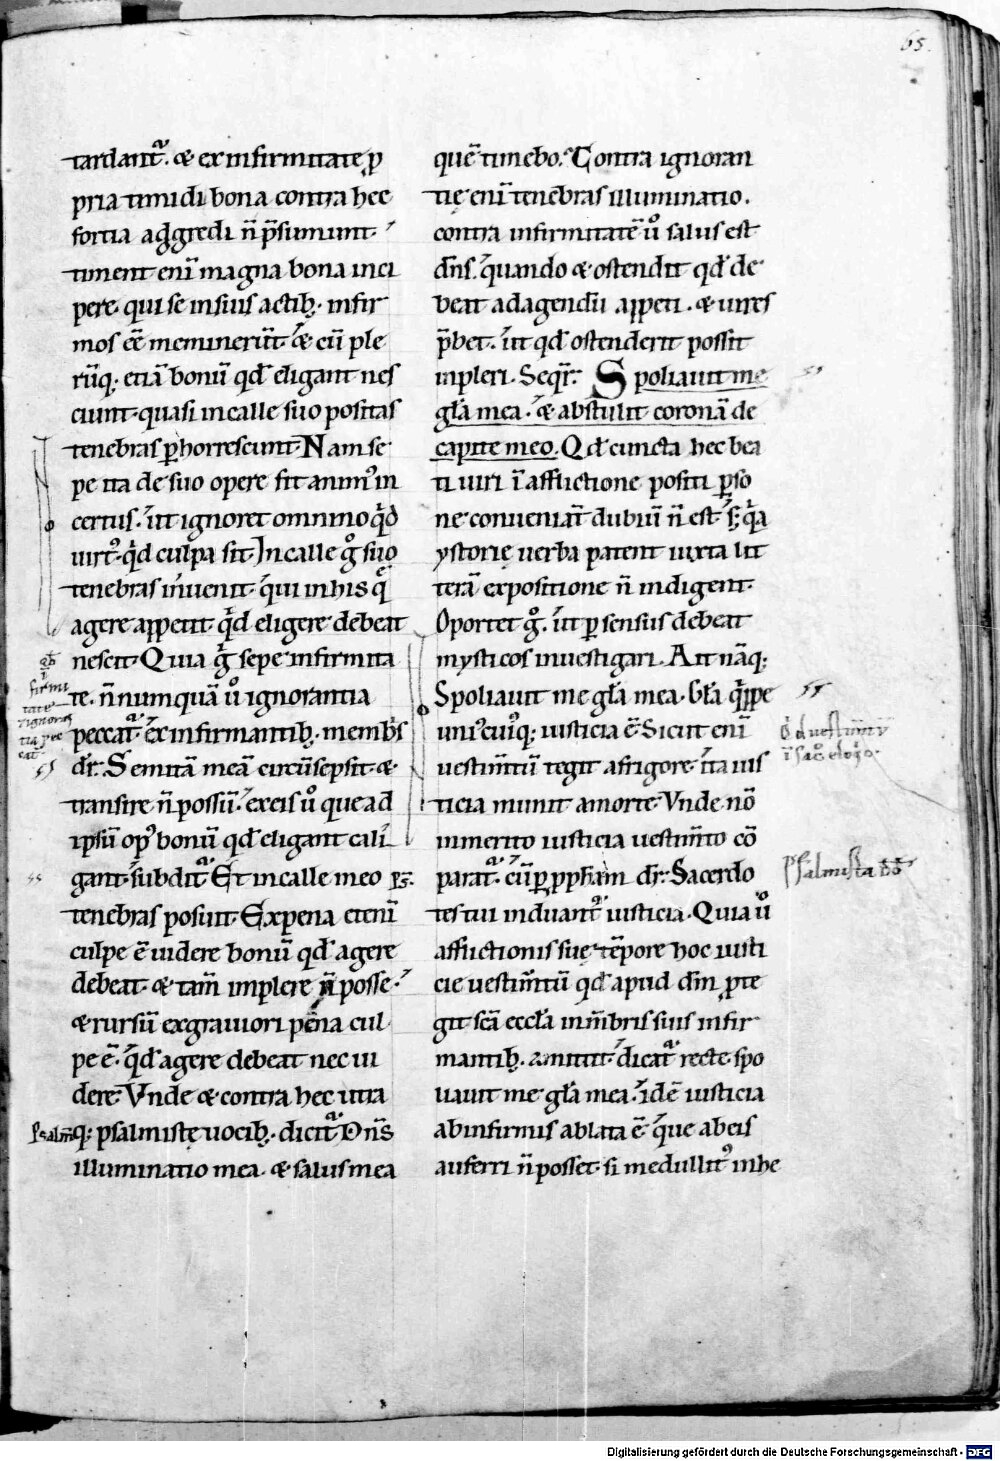 65.
tardant᷑. & ex infirmitate ꝓ
pria timidi bona contra hec
fortia adgredi n̄ p̄sumunt.
timent eni̅ magna bona inci
pere. qui se in suis actib; infir
mos ee̅ meminer̅t. & cu̅ ple
ru̅q; etia̅ bonu̅ qd̅ eligant nes
ciunt. quasi in calle suo positas
tenebras ꝑhorrescunt. Nam se
pe ita de suo opere fit animꝰ in
certus. ut ignoret omnino qͥd
uirtꝰ. qͥd culpa sit. In calle gͦ suo
tenebras inuenit. qui in his qͤ
agere appetit. qͥd eligere debeat
nescit. Quia gͦ sepe infirmita
te. n̄ numqua̅ uͦ ignorantia
peccat᷑. ex infirmantib; membris
dr̅. Semita̅ mea̅ circu̅sepsit. &
transire n̄ possu̅. ex eis uͦ que ad
ipsu̅ opꝰ bonu̅ qd̅ eligant cali
gant. subdit᷑. Et in calle meo
tenebras posuit. Ex pena eteni̅
culpe e̅ uidere bonu̅ qd̅ agere
debeat. & tam̅ implere n̄ posse.
& rursu̅ ex grauiori pena cul
pe e̅. qd̅ agere debeat nec ui
dere. Vnde & contra hec utra
q; psalmistę uocib; dicit᷑. Dn̅s
illuminatio mea. & salus mea
que̅ timebo. Contra ignoran
tię eni̅ tenebras illuminatio.
contra infirmitate̅ uͦ salus est
dn̅s. quando & ostendit qd̅ de
beat ad agendu̅ appeti. & uires
p̄bet. ut qd̅ ostenderit possit
inpleri. Seqͥr᷑. Spoliauit me
gl̅a mea. & abstulit corona̅ de
capite meo. Qd̅ cuncta hec bea
ti uiri i̅ afflictione positi ꝑso
ne conueniat̅ dubiu̅ n̄ est. S; qͥa
ystorię uerba patent iuxta lit
tera̅ expositione n̄ indigent.
Oportet gͦ. ut ꝑ sensus debeat
mysticos inuestigari. Ait na̅q;
Spoliauit me gl̅a mea. Gl̅a qͥppe
uniꝰcuiꝰq; iusticia e̅. Sicut eni̅
uestim̅tu̅ tegit a frigore. ita ius
ticia munit a morte. Vnde no̅
inmerito iusticia uestim̅to co̅
parat᷑. cu̅ ꝑ ꝓpham̅ dr̅. Sacerdo
tes tui induant᷑ iusticia. Quia uͦ
afflictionis suę te̅pore hoc iusti
cie uestim̅tu̅ qd̅ apud dm̅ ꝓte
git sc̅a eccl̅a in m̅bris suis infir
mantib; amittit. dicat᷑ recte. spo
liauit me gl̅a mea. ide̅ iusticia
ab infirmis ablata e̅. que ab eis
auferri n̄ posset. si medullitꝰ inhe
Psalm̅
Psalmista
Digitalisierung gefördert durch die Deutsche Forschungsgemeinschaft - DFG